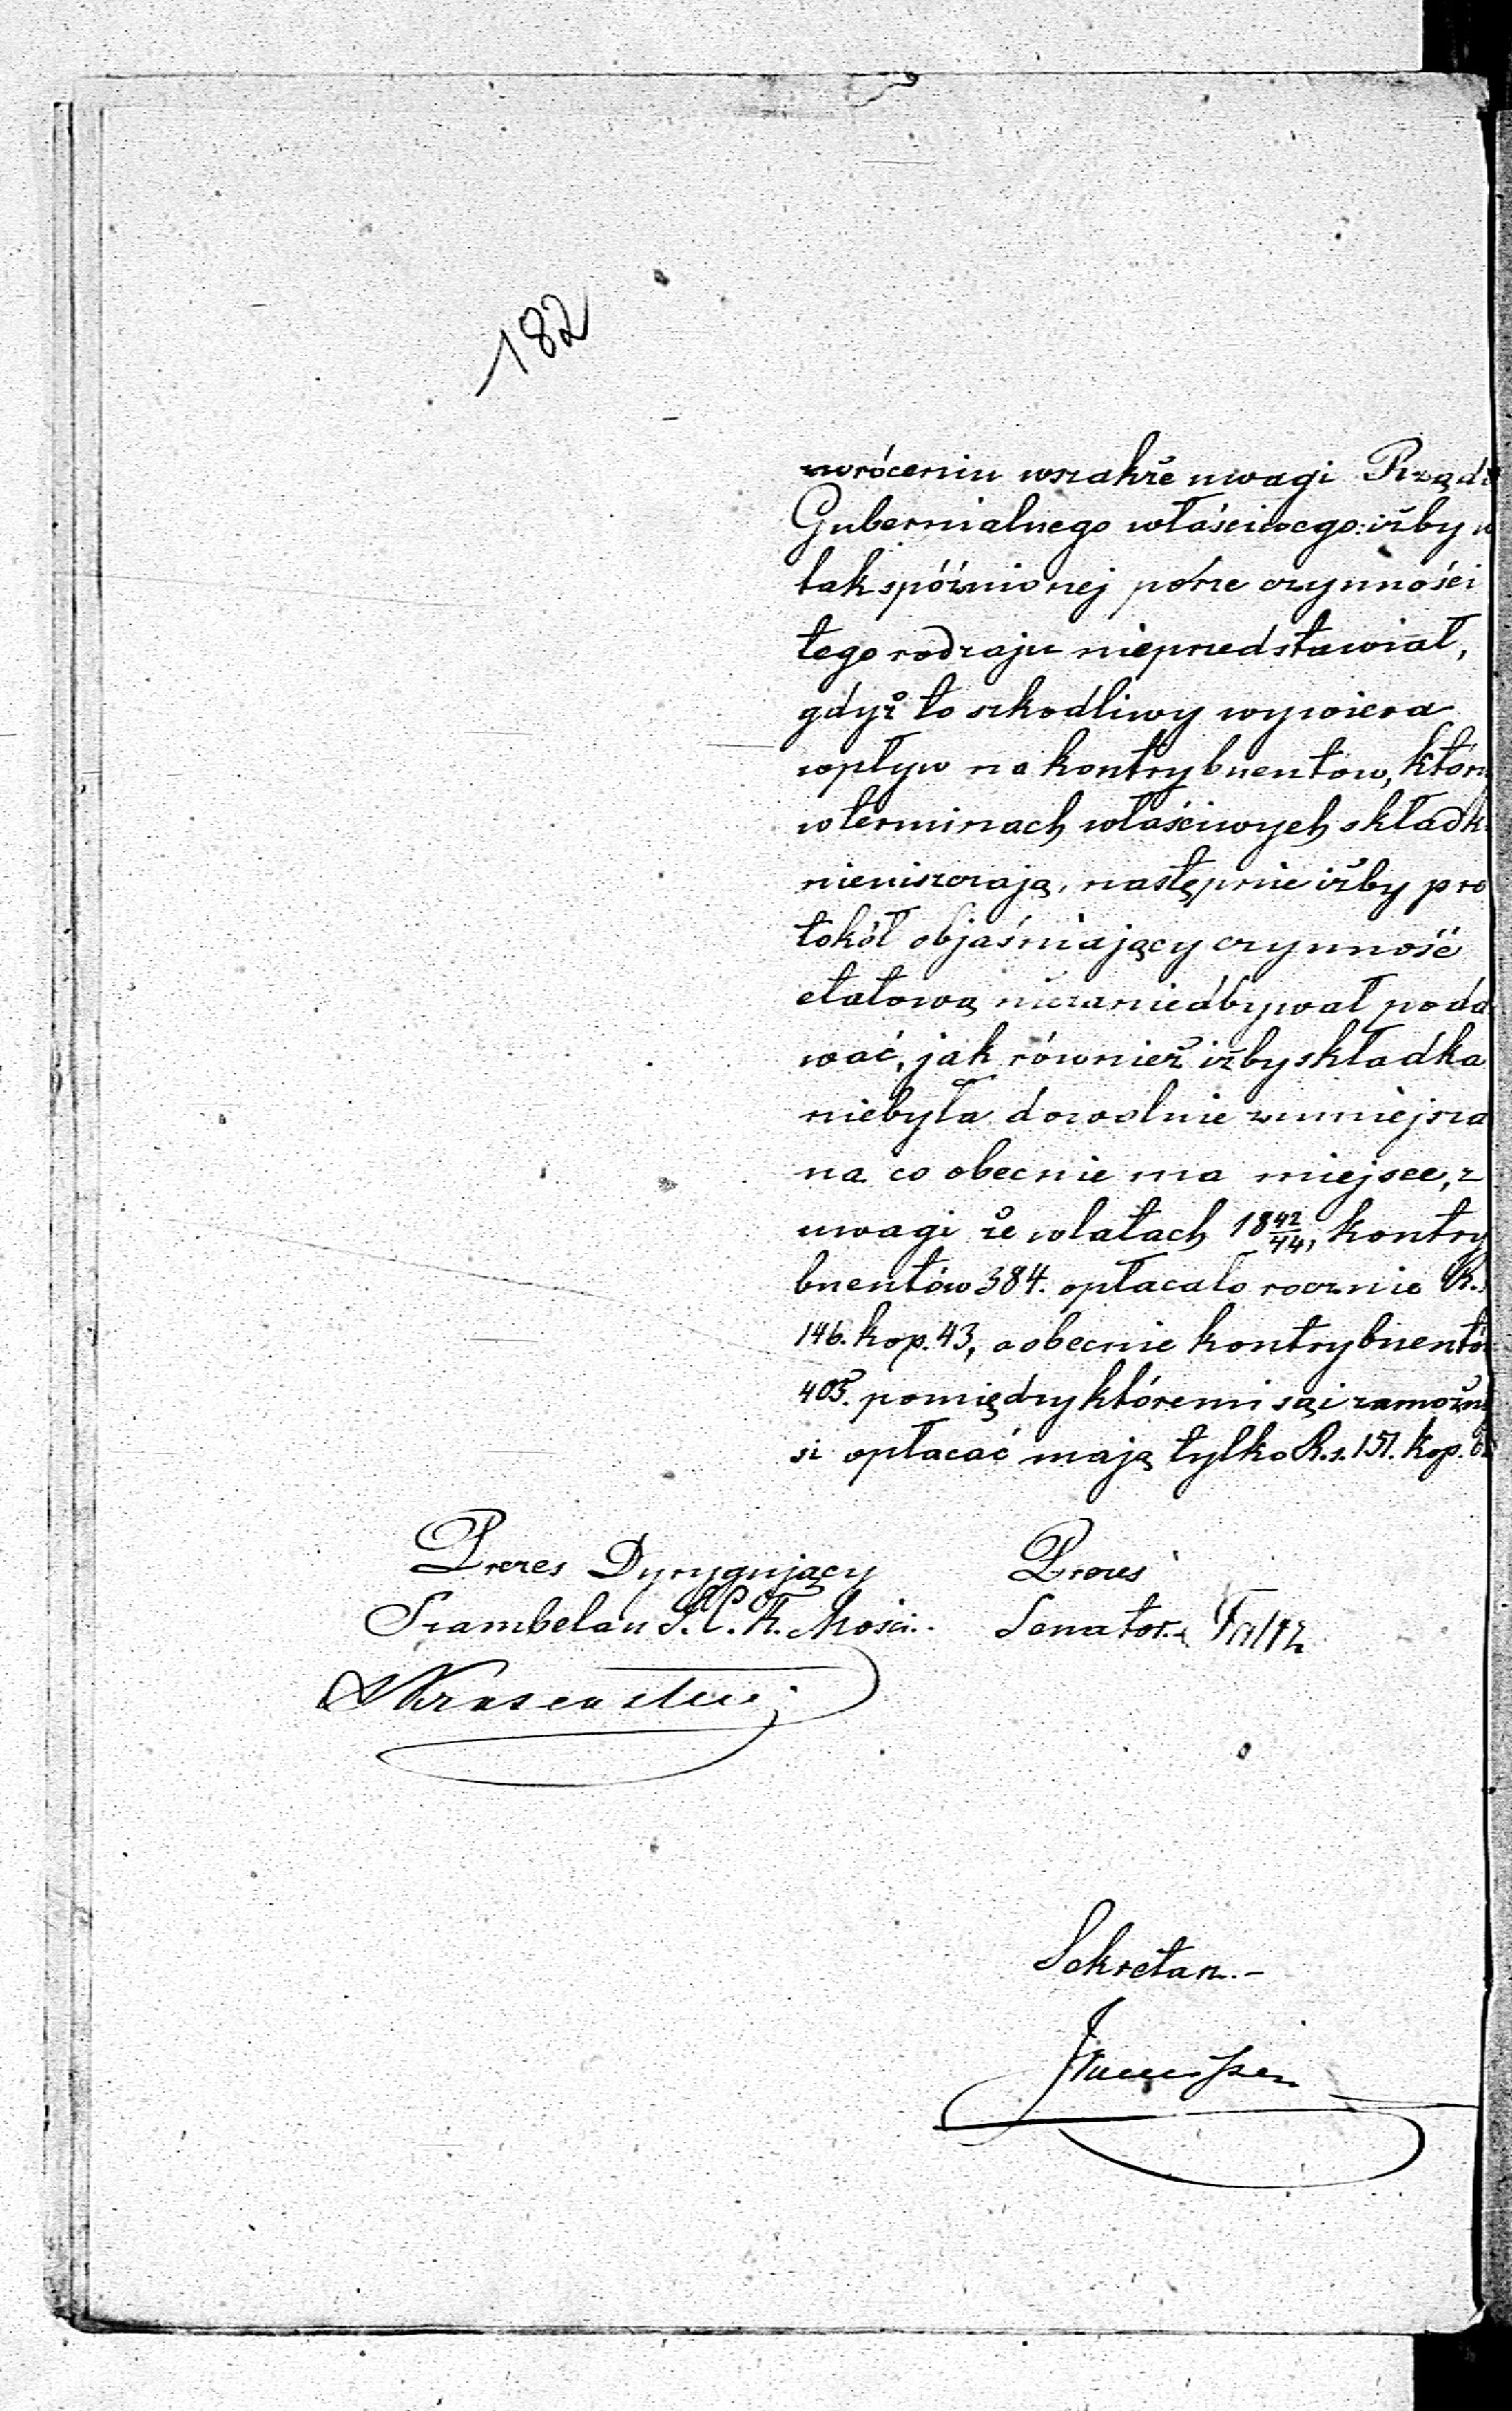 182
zwróceniu wszakże uwagi Rządu
Gubernialnego właściwego: iżby w
tak spóźnionej porze czynności
tego rodzaju nieprzedstawiał,
gdyż to szkodliwy wywiera
wpływ na kontrybuentow, którzy
w terminach właściwych składki
nieuiszczają, następnie iżby pro
tokół objaśniający czynność
etatową niezaniedbywał poda
wać, jak również iżby składka
niebyła dowolnie zmniejsza
na co obecnie ma miejsce, z
uwagi że wlatach 18 42/44, kontry
buentów 384. opłacało rocznie R.s.
146. kop. 43, a obecnie kontrybuentów
405. pomiędzy któremi są i zamożniej
si opłacać mają tylko R.s. 151. kop.
Prezes Dyrygujący
Szambelan J. C. K. Mości.
Prezes
Senator.
Sekretarz.-